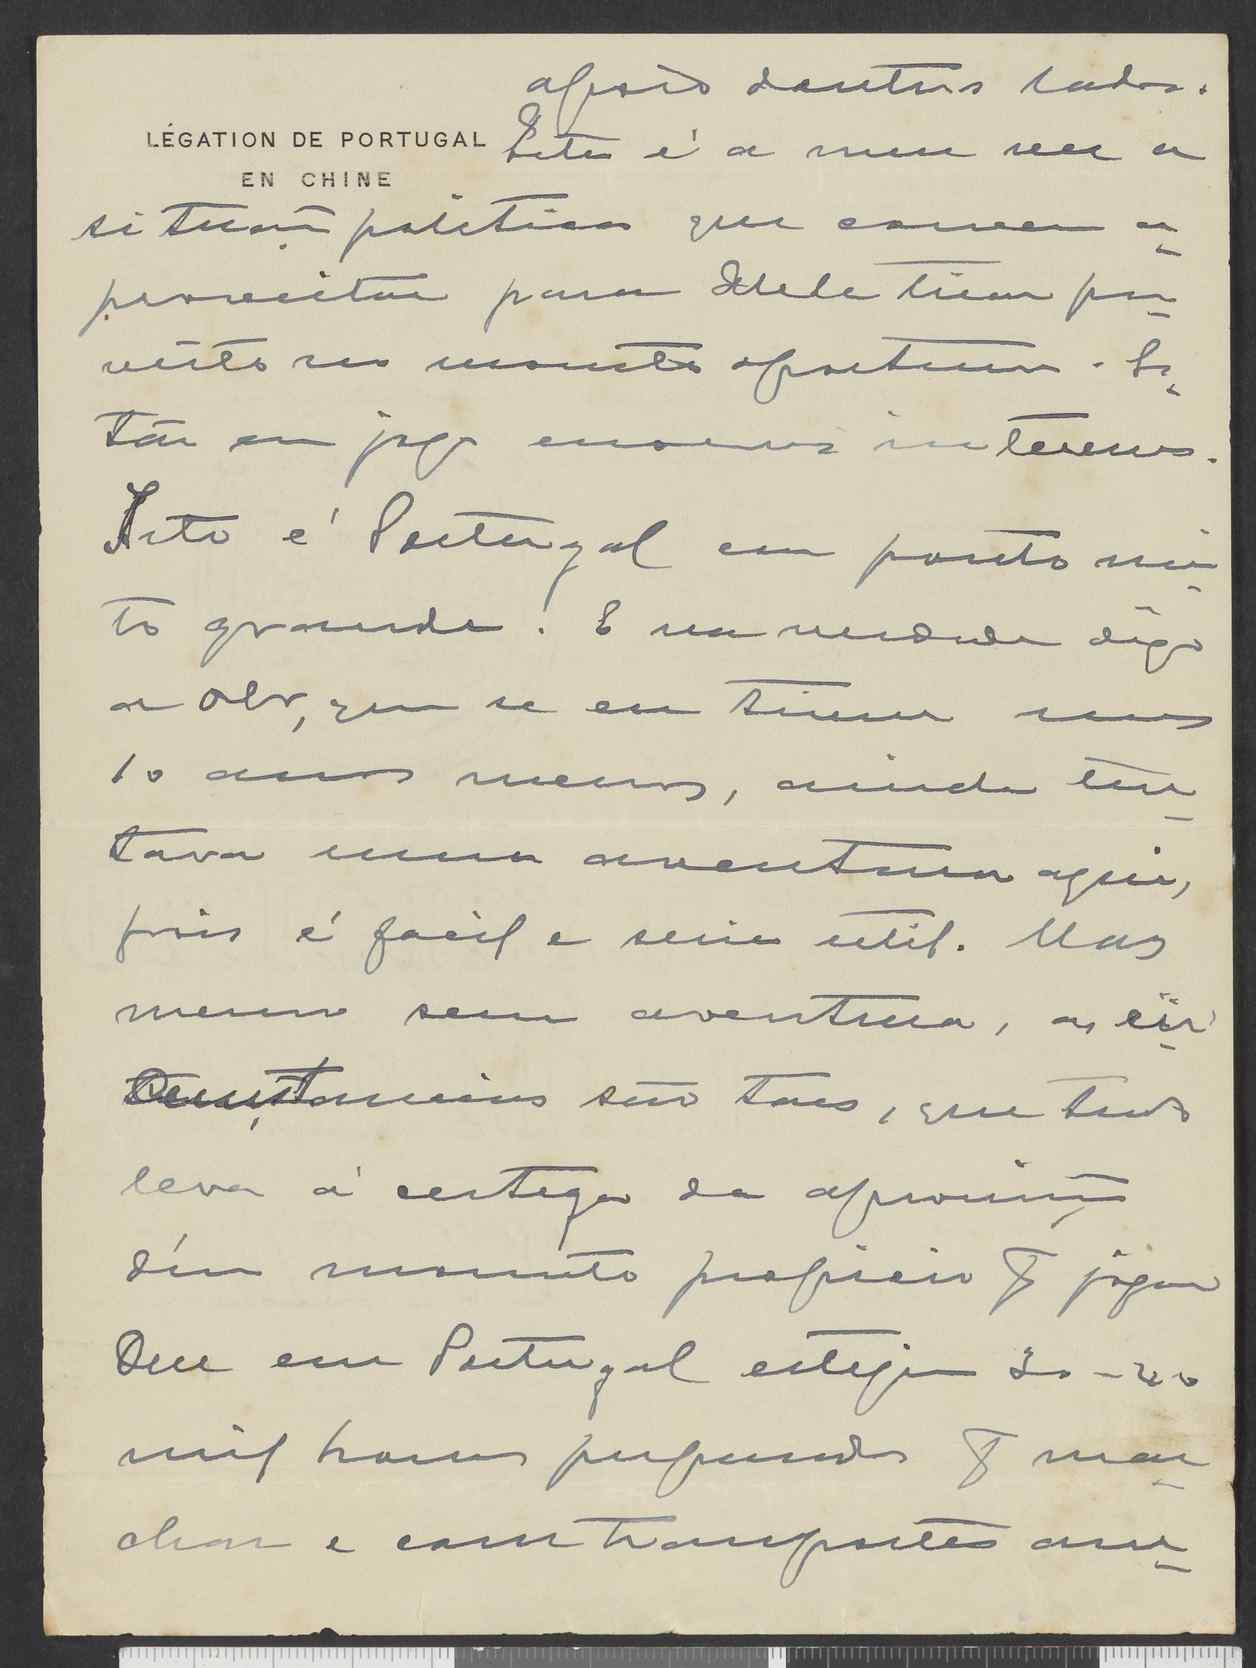 apoio doutros lados.
LÉGATION DE PORTUGAL
EN CHINE
Esta é a meu ver a
situação politica que convem a-
proveitar para dela tirar pro-
veito no momento oportuno. Es-
tão em jogo enormes interesses.
Isto é Portugal em ponto mui-
to grande! E na verdade digo
a que se eu tivesse uns
10 anos menos, ainda ten-
tava uma aventura aqui,
pois é facil e seria util. Mas
mesmo sem aventura, as cir-
cunstancias são taes, que tudo
leva á certeza da aproximação
d'um momento propicio jogar
Que em Portugal estejam 30-40
mil homens preparados mar-
char e com transportes